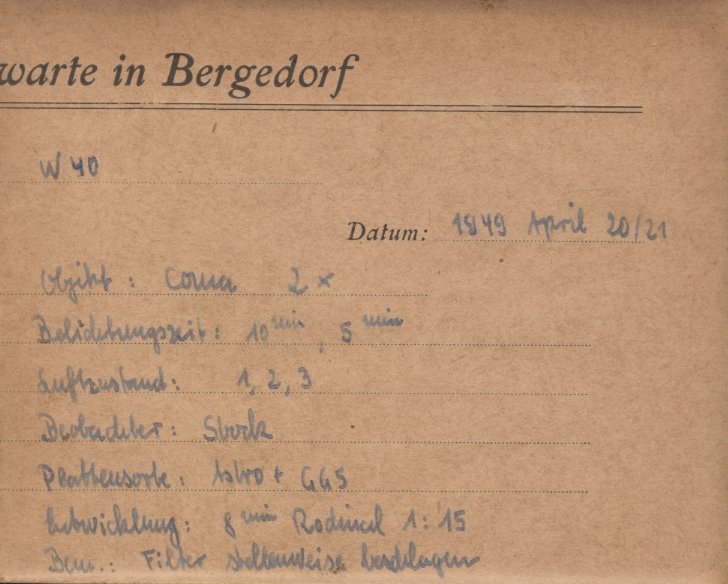 warte in Bergedorf
W 40
Datum: 1949 April 20/21
Objekt : Coma 2 ×
Belichtungszeit : 10 min, 5 min
Luftzustand : 1, 2, 3
Beobachter : Stock
Plattensorte : Astro + GG5
Entwicklung : 8 min Rodinal 1 : 15
Bem. : Filter stellenweise beschlagen